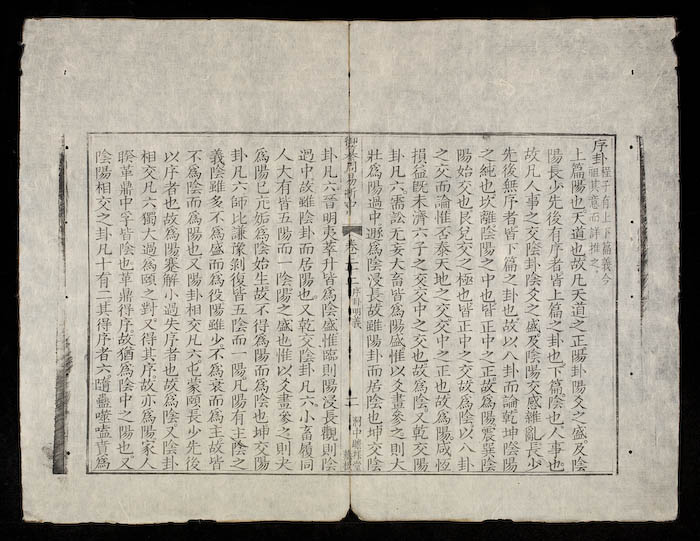 序卦 程子有上下篇義今
祖其意而詳推之
上篇陽也天道也故凡天道之正陽卦陽爻之盛及陰
陽長少先後有序者皆上篇之卦也下篇陰也人事也
故凡人事之交陰卦陰爻之盛及陰陽交感雜亂長少
先後無序者皆下篇之卦也故以八卦而論乾坤陰陽
之純也坎離陰陽之中也皆正中之正故爲陽震巽陰
陽始交也艮兌交之極也皆正中之交故爲陰以八卦
之交而論惟否泰天地之交交中之正也故爲陽咸恆
損益旣未濟六子之交交中之交也故爲陰又乾交陽
卦凡六需訟无妄大畜皆爲陽盛惟以爻畫參之則大
壯爲陽過中遯爲陰浸長故雖陽卦而居陰也坤交陰
御纂周易折中 卷二十二 序卦明義 一
卦凡六晉明夷萃升皆爲陰盛惟臨則陽浸長觀則陰
過中故雖陰卦而居陽也又乾交陰卦凡六小畜履同
人大有皆五陽而一陰陽之盛也惟以爻畫參之則夬
爲陽已亢姤爲陰始生故不得爲陽而爲陰也坤交陽
卦凡六師比謙豫剝復皆五陰而一陽凡陽有主陰之
義陰雖多不爲盛而爲役陽雖少不爲衰而爲主故皆
不爲陰而爲陽也又陽卦相交凡六屯蒙頤長少先後
以序者也故爲陽蹇解小過失序者也故爲陰又陰卦
相交凡六獨大過爲頤之對又得其序故亦爲陽家人
睽革鼎中孚皆陰也革鼎得序故猶爲陰中之陽也又
陰陽相交之卦凡十有二其得序者六隨蠱噬嗑賁爲